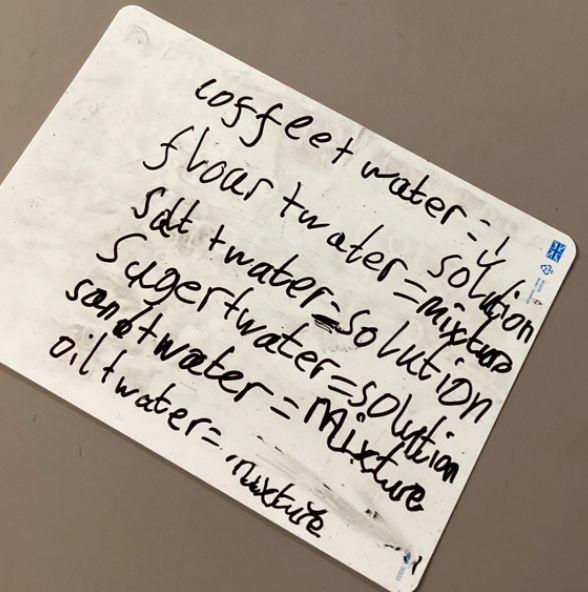 coffee+water=
solution
flour+water=mixture
salt+water=solution
suger+water=solution
sand+water=mixture
oil+water=
mixture